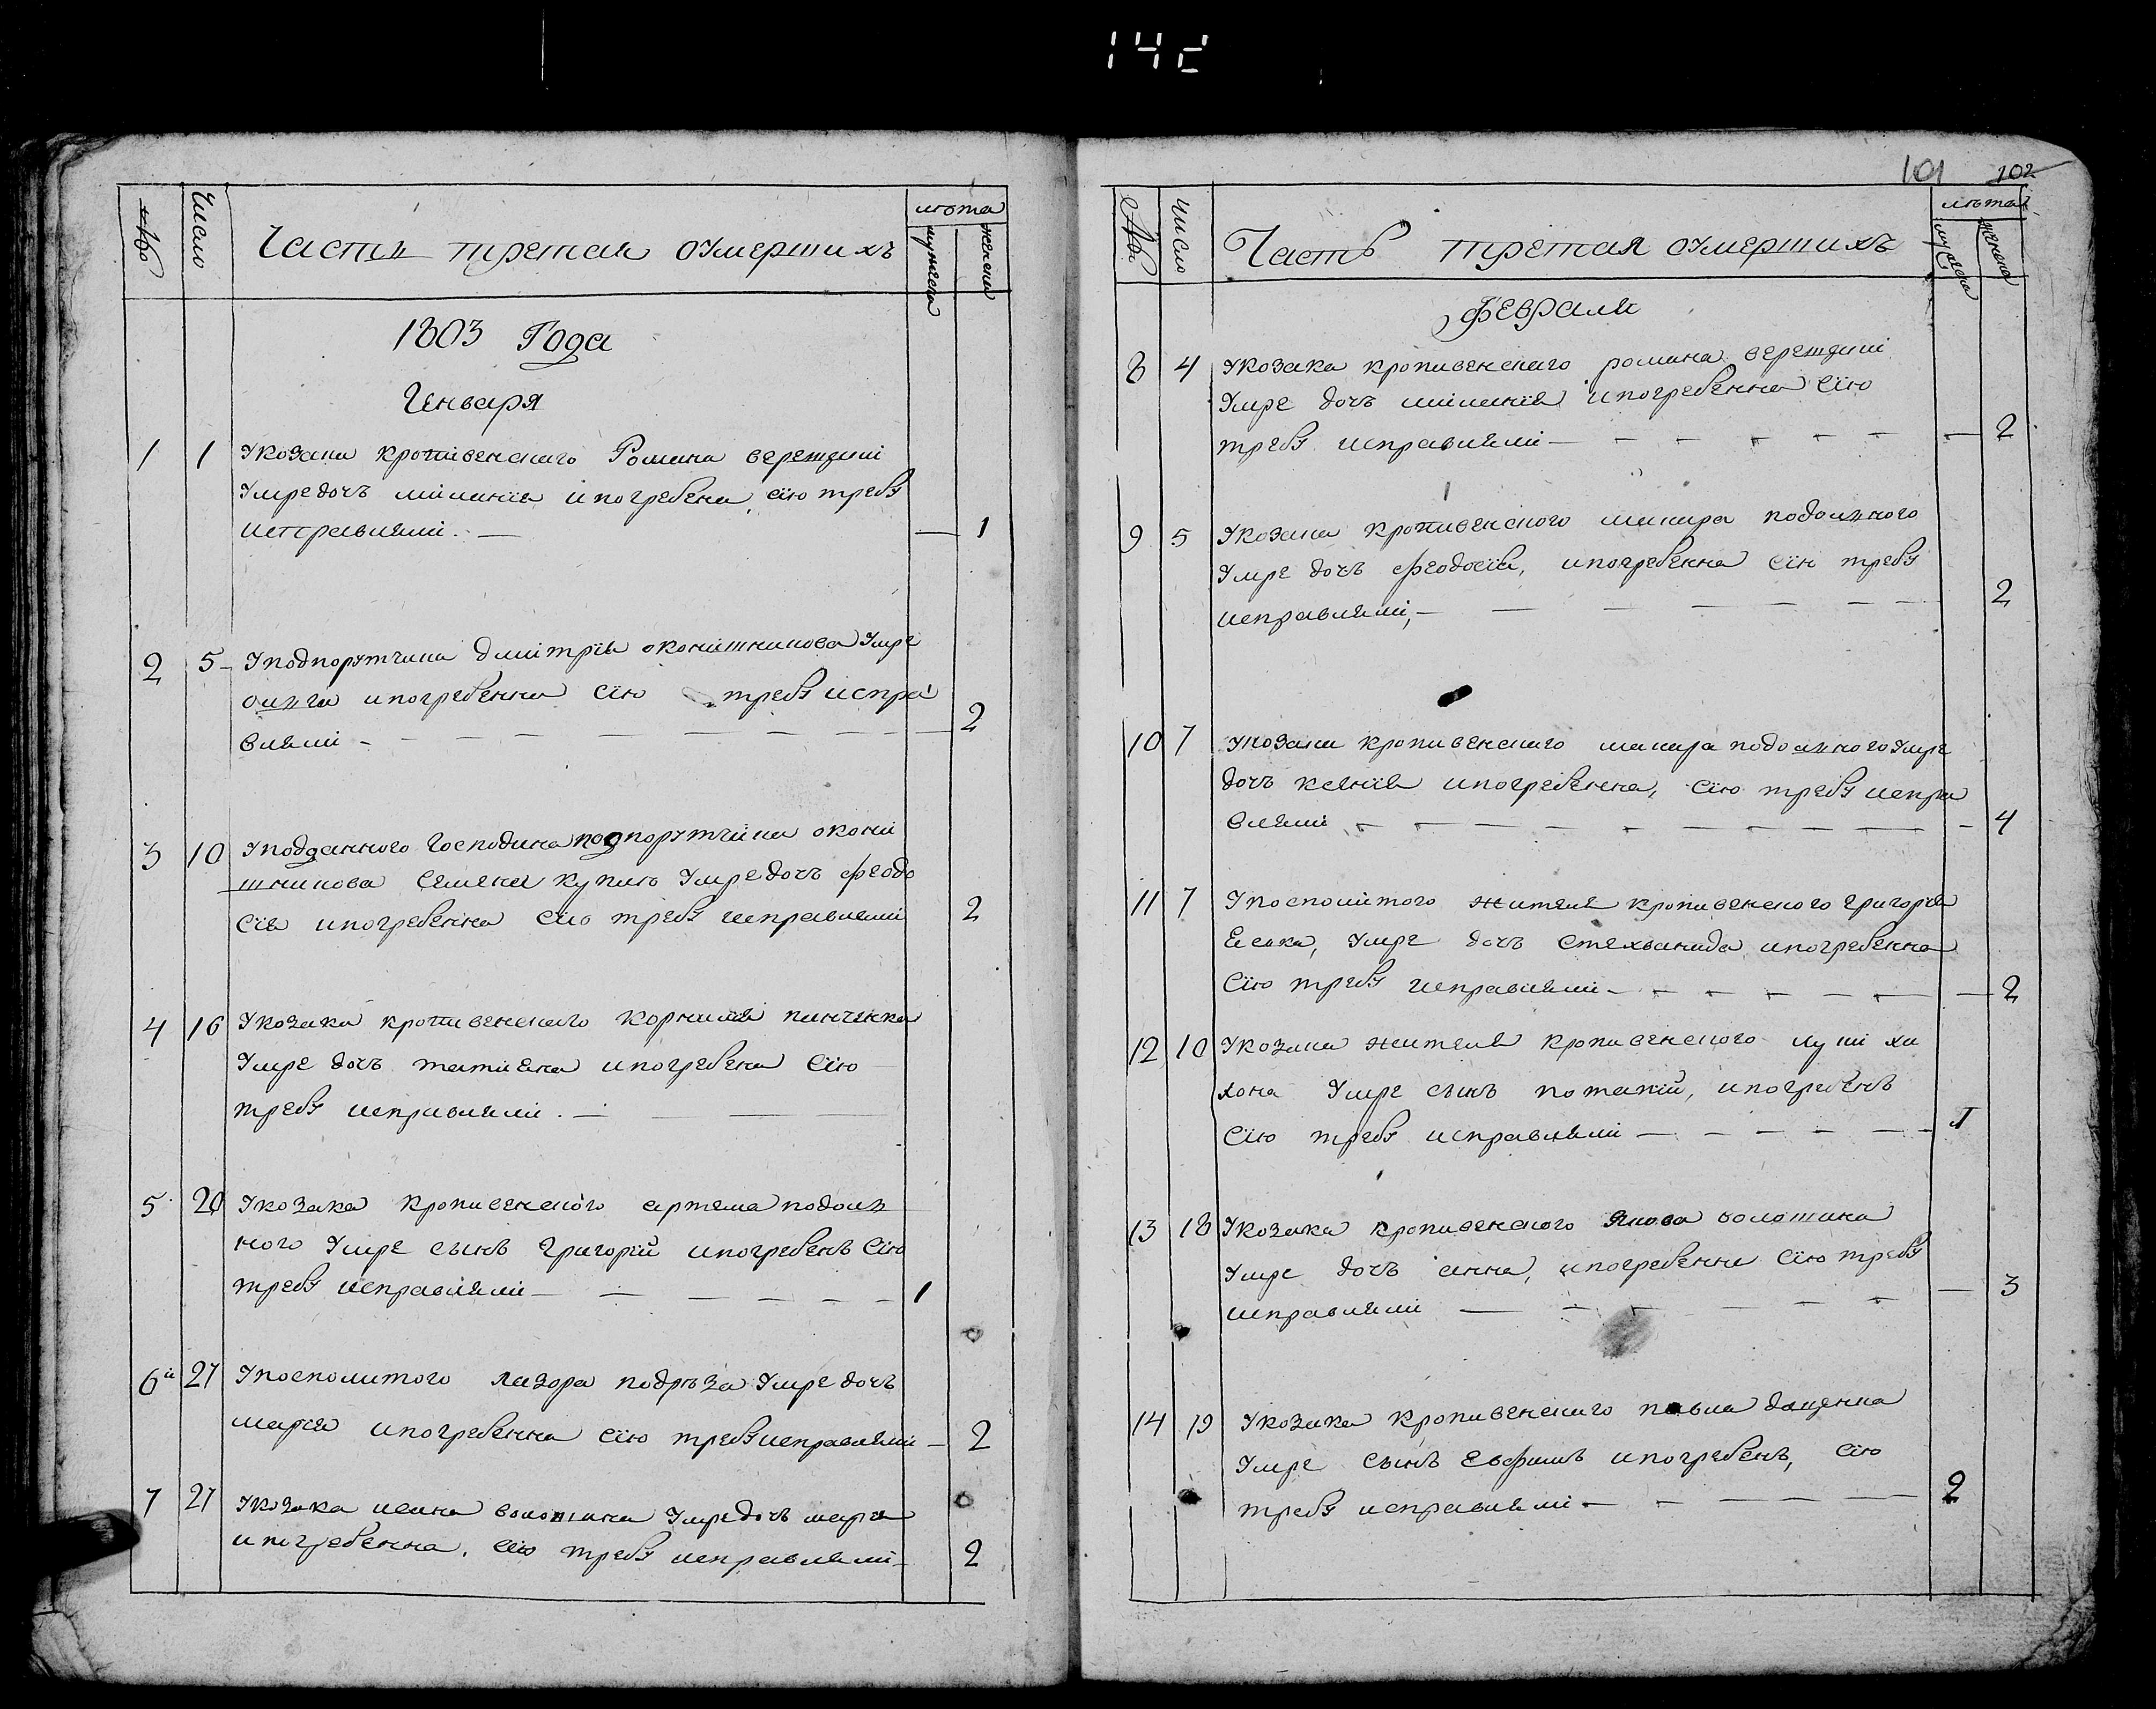 142
№
Число
Часть третая оумершихъ
лѣта
мужеска
женска
1803 Года
Генваря
1 1 Укозака кропивенскаго Романа вереждкі
Умре дочъ міланія ипогребена, сію требу
исправляли. — 1
2 5 Уподпорутчика дмітрія оконішникова Умре
олга ипогребенна Сію требу испра
вляли — 2
3 10 Уподданного Господина подпорутчика окони
шникова Семена купию Умре дочъ феодо
Сія ипогребенна Сію требу исправляли 2
4 16 Укозака кропивенскаго корнилія пинченка
Умре дочъ татияна ипогребена Сію
требу исправляли. —
5 20 Укозака кропивенского артема подолъ
ного Умре сынъ григорій ипогребенъ Сію
требу исправляли — 1
6й 21 Упосполитого лазора подрѣза Умре дочъ
марія ипогребенна Сію требу исправляли — 2
7 21 Укозака ивана волошина Умре дочъ марія
ипогребенна, Сію требу исправляли — 2
101 102
№
Число
Часть третая оумершихъ
лѣта
мужеска
женска
февраля
8 4 Укозака кропивенскаго романа вереждкі
Умре дочъ міланія ипогребенна Сію
требу исправляли — 2
9 5 Укозака кропивенского макара подолного
Умре дочъ феодосія, ипогребенна Сію требу
исправляли, — 2
10 7 Укозака кропивенскаго макара подолного Умре
дочъ ксенія ипогребенна, Сію требу испра
вляли — 4
11 7 Упосполитого жителя кропивенского григорія
Еська, Умре дочъ Стехванида ипогребенна
Сію требу исправляли — 2
12 10 Укозака жителя кропивенского луки ха
хона Умре сынъ потапій, ипогребенъ
Сію требу исправляли — 1
13 18 Укозака кропивенского Якова волошина
Умре дочъ анна, ипогребенна Сію требу
исправляли — 3
14 19 Укозака кропивенскаго павла даценка
Умре сынъ Евфимъ ипогребенъ, Сію
требу исправляли — 2